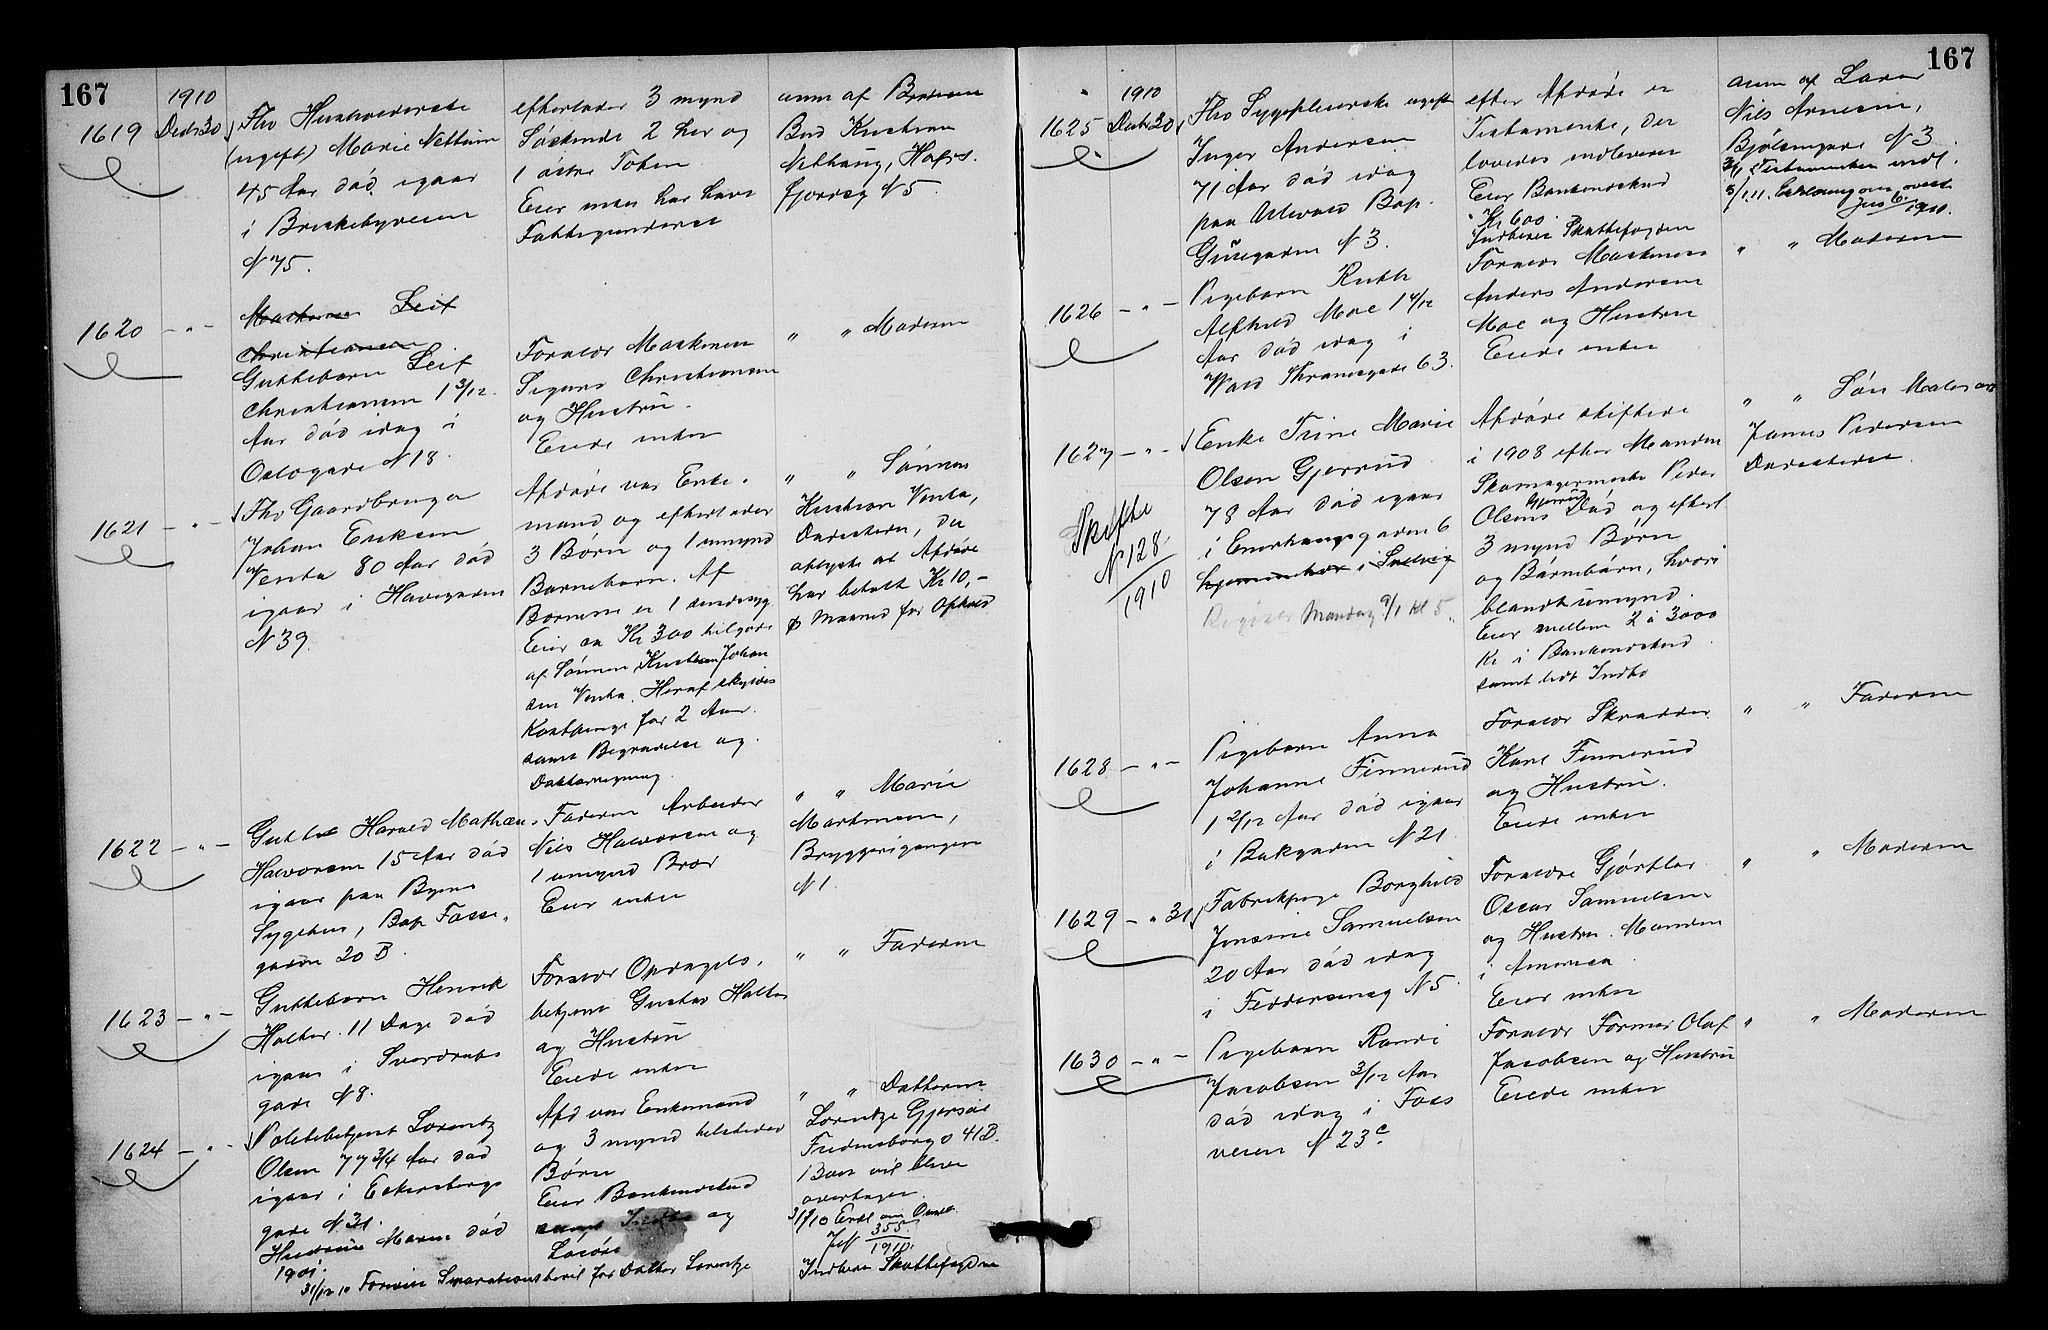 167
1910
1619 Decbr 30 Fhv Husholderske
(ugift) Marie Nettum
45 Aar død igaar
i Briskebyveien
N 75.
efterlader 3 mynd
Søskende 2 her og
1 østre Toten
Eier men har havt
Fattigunderst
anm af Broderen
Bud Kristian
Nettung, Hafrs-
fjordsg N 5.
1620 - " - Maskinen Leif
Christiansen
Guttebarn Leif
Christiansen 1 3/12
Aar død idag i
Oslogade N 18.
Forældr Maskinen
Sigurd Christiansen
og Hustru.
Eiede intet
" " Moderen
1621 - " - Fhv Gaardbruger
Johan Eriksen
Venta 80 Aar død
igaar i Havegaden
N 39.
Afdøde var Enke-
mand og efterlader
3 Børn og 1 umynd
Barnebarn. Af
Børnene er 1 sindssyg
Eier ca Kr 300 tilgode
af Sønnen Kristian Johan
sen Venta. Heraf skyldes
Kostpenge for 2 Aar
samt Begravelse og
Doktorregning
" " Sønnen
Kristian Venta,
Dersteds, der
oplyste at Afdøde
har betalt Kr 10,-
p Maaned for Ophold
1622 - " - Gutten Harald Mathæus
Halvorsen 15 Aar død
igaar paa Byens
Sygehus, Bop Fosse-
gaden 20 B.
Faderen Arbeider
Nils Halvorsen og
1 umynd Bror
Eier intet
" " Marie
Martinsen,
Bryggerigangen
N 1.
1623 - " - Guttebarn Henrik
Holter 11 Dage død
igaar i Sverdrups
gade N 8.
Forældr Opdagels-
betjent Gustav Holter
og Hustru
Eiede intet
" " Faderen
1624 - " - Politibetjent Lorentz
Olsen 77 3/4 Aar død
igaar i Eckersbergs
gade N 31.
Hustruen Maren død
1901.
Afd var Enkemand
og 3 mynd tilstede
Børn
Eier Bankindskud
samt Indbo og
Løsøre
" " Datteren
Lorentze Gjersøe
Fredensborgv 41 B.
Boet vil blive
overtaget.
31/10 Erkl om Overt
Jno 355/1910
Indberr Skattefogden
31/12 10 Forevist Skiftebevil for Datter Lorentze
167
1910
1625 Decbr 30 Fhv Sygepleierske ugift
Inger Andersen
71 Aar død idag
paa Ullevaal Bop.
Grüsgaden N 3.
efter Afdøde er
Testamente, der
lovedes indleveret
Eier Bankindskud
Kr 600.
Indberer Skattefogden
anm af Lærer
Nils Arnesen,
Bjølsengade N 3
3/1 Testamentet indl.
5/1 11. Erklæring om overt
Jno 6/1911.
1626 - " - Pigebarn Ruth
Alfhild Moe 1 4/12
Aar død idag i
Wald Thranesgade 63.
Forældr Maskinen
Anders Andersen
Moe og Hustru
Eiede intet
" " Moderen
1627 - " - Enke Trine Marie
Olsen Gjerrud
78 Aar død igaar
i Enerhauggaden 6
hjemmehør i Solvig
Mandag 9/1 kl 5.
Skifte
N 128/1910
Afdøde skiftede
i 1908 efter Manden
Skomagermester Peder
Olsens Gjerrud Død og efterl
3 mynd Børn
og Børnebørn, hvori
blandt umynd.
Eier mellem 2 à 3000
Kr i Bankindskud
samt lidt Indbo
" " Søn Maler
James Pedersen
Dersteds.
1628 - " - Pigebarn Anna
Johanne Finnerud
1 2/12 Aar død igaar
i Bakgaden N 21.
Forældr Skrædder
Karl Finnerud
og Hustru.
Eiede intet
" " Faderen
1629 - " 31 Fabrikpige Borghild
Jensine Samuelsen
20 Aar død idag
i Feddersensg N 5.
Forældre Gjørtler
Oscar Samuelsen
og Hustru. Manden
i Amerika
Eier intet
" " Moderen
1630 - " - Pigebarn Randi
Jacobsen 3/12 Aar
død idag i Foss
veien N 23 c.
Forældr Former Olaf
Jacobsen og Hustru
Eiede intet
" " Moderen